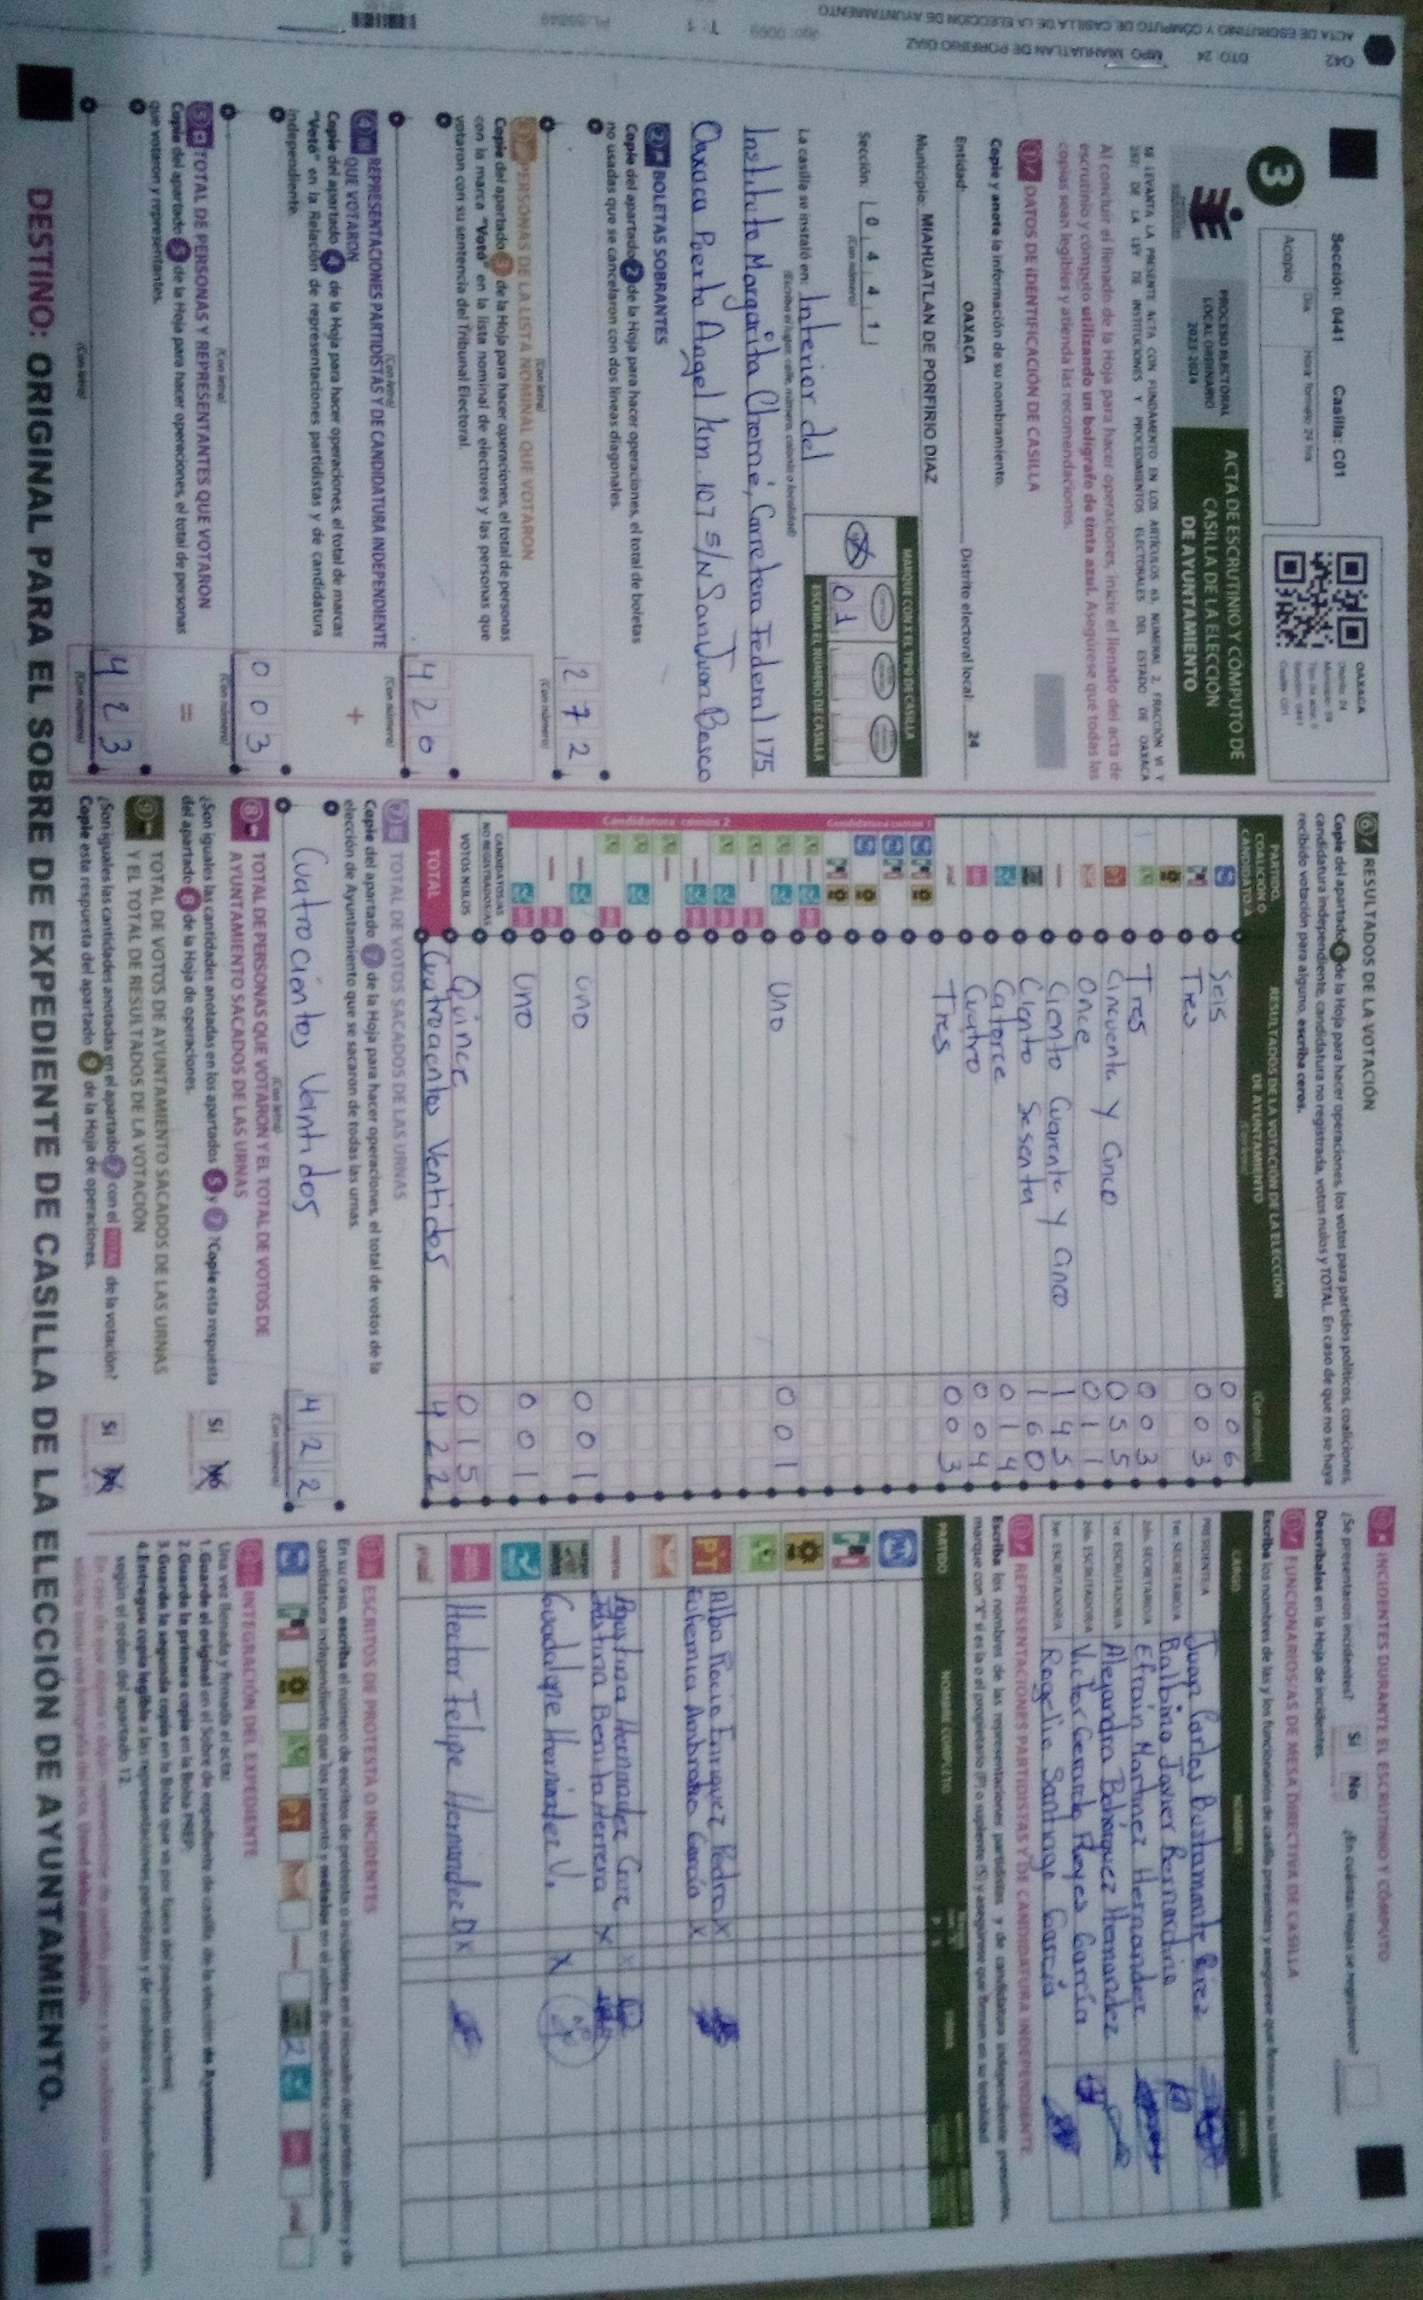 042
DTO: 24
MPO: MIAHUATLAN DE PORFIRIO DIAZ
ACTA DE ESCRUTINIO Y CÓMPUTO DE CASILLA DE LA ELECCIÓN DE AYUNTAMIENTO
Sección: 0441 Casilla: C01
3
Acopio
Día
PROCESO ELECTORAL
LOCAL ORDINARIO
2023-2024
ACTA DE ESCRUTINIO Y CÓMPUTO DE
CASILLA DE LA ELECCIÓN
DE AYUNTAMIENTO
OAXACA
SE LEVANTA LA PRESENTE ACTA CON FUNDAMENTO EN LOS ARTÍCULOS 63, NUMERAL 2, FRACCIÓN VI Y
DE LA LEY DE INSTITUCIONES Y PROCEDIMIENTOS ELECTORALES DEL ESTADO DE OAXACA
Al concluir el llenado de la Hoja para hacer operaciones, inicie el llenado del acta de
escrutinio y cómputo utilizando un bolígrafo de tinta azul. Asegúrese que todas las
copias sean legibles y atienda las recomendaciones.
1 DATOS DE IDENTIFICACIÓN DE CASILLA
Copie y anote la información de su nombramiento.
Entidad: OAXACA Distrito electoral local: 24
Municipio: MIAHUATLAN DE PORFIRIO DIAZ
Sección: 0 4 4 1
(Con número)
MARQUE CON X EL TIPO DE CASILLA
0 1
ESCRIBA EL NÚMERO DE CASILLA
La casilla se instaló en: Interior del
(Escriba el lugar, calle, número, colonia o localidad)
Instituto Margarita Chomé, Carretera Federal 175
Oaxaca Puerto Angel km. 107 S/N San Juan Bosco
2 BOLETAS SOBRANTES
Copie del apartado 2 de la Hoja para hacer operaciones, el total de boletas
no usadas que se cancelaron con dos líneas diagonales.
2 7 2
(Con letra) (Con número)
3 PERSONAS DE LA LISTA NOMINAL QUE VOTARON
Copie del apartado 3 de la Hoja para hacer operaciones, el total de personas
con la marca "Votó" en la lista nominal de electores y las personas que
votaron con su sentencia del Tribunal Electoral.
4 2 0
(Con letra) (Con número)
4 REPRESENTACIONES PARTIDISTAS Y DE CANDIDATURA INDEPENDIENTE
QUE VOTARON
+
Copie del apartado 4 de la Hoja para hacer operaciones, el total de marcas
"Votó" en la Relación de representaciones partidistas y de candidatura
independiente.
0 0 3
(Con letra) (Con número)
5 TOTAL DE PERSONAS Y REPRESENTANTES QUE VOTARON
=
Copie del apartado 5 de la Hoja para hacer operaciones, el total de personas
que votaron y representantes.
4 2 3
(Con letra) (Con número)
6 RESULTADOS DE LA VOTACIÓN
Copie del apartado 6 de la Hoja para hacer operaciones, los votos para partidos políticos, coaliciones,
candidatura independiente, candidatura no registrada, votos nulos y TOTAL. En caso de que no se haya
recibido votación para alguno, escriba ceros.
PARTIDO, COALICIÓN O CANDIDATO/A
RESULTADOS DE LA VOTACIÓN DE LA ELECCIÓN DE AYUNTAMIENTO
(Con letra) (Con número)
Seis 0 0 6
Tres 0 0 3
Tres 0 0 3
Cincuenta y Cinco 0 5 5
Once 0 1 1
Ciento Cuarenta y Cinco 1 4 5
Ciento Sesenta 1 6 0
Catorce 0 1 4
Cuatro 0 0 4
Tres 0 0 3
Candidatura común 1
Candidatura común 2
Uno 0 0 1
Uno 0 0 1
Uno 0 0 1
CANDIDATOS/AS NO REGISTRADOS/AS
VOTOS NULOS Quince 0 1 5
TOTAL Cuatrocientos Ventidos 4 2 2
7 TOTAL DE VOTOS SACADOS DE LAS URNAS
Copie del apartado 7 de la Hoja para hacer operaciones, el total de votos de la
elección de Ayuntamiento que se sacaron de todas las urnas.
Cuatrocientos Veintidos 4 2 2
(Con letra) (Con número)
8 TOTAL DE PERSONAS QUE VOTARON Y EL TOTAL DE VOTOS DE
AYUNTAMIENTO SACADOS DE LAS URNAS
¿Son iguales las cantidades anotadas en los apartados 5 y 7? Copie esta respuesta
del apartado 8 de la Hoja de operaciones. Sí No
9 TOTAL DE VOTOS DE AYUNTAMIENTO SACADOS DE LAS URNAS
Y EL TOTAL DE RESULTADOS DE LA VOTACIÓN
¿Son iguales las cantidades anotadas en el apartado 7 con el TOTAL de la votación?
Copie esta respuesta del apartado 9 de la Hoja de operaciones. Sí No
INCIDENTES DURANTE EL ESCRUTINIO Y CÓMPUTO
¿Se presentaron incidentes? Sí No ¿En cuántas Hojas se registraron?
Descríbalos en la Hoja de incidentes.
FUNCIONARIOS/AS DE MESA DIRECTIVA DE CASILLA
Escriba los nombres de las y los funcionarios de casilla presentes y asegúrese que firmen en su totalidad.
CARGO NOMBRES FIRMAS
PRESIDENTE/A Juan Carlos Bustamante Pérez
1er. SECRETARIO/A Balbino Javier Bernardino
2do. SECRETARIO/A Efraín Martínez Hernandez
1er. ESCRUTADOR/A Alejandra Bohórquez Hernandez
2do. ESCRUTADOR/A Victor Gerardo Reyes García
3er. ESCRUTADOR/A Rogelio Santiago García
REPRESENTACIONES PARTIDISTAS Y DE CANDIDATURA INDEPENDIENTE
Escriba los nombres de las representaciones partidistas y de candidatura independiente presentes,
marque con "X" si es la o el propietario (P) o suplente (S) y asegúrese que firmen en su totalidad.
PARTIDO NOMBRE COMPLETO
PAN
PT Alba Rocio Enriquez Pedro X
Eufemia Ambrosio García X
morena Agustina Hernandez Cruz X
Cristina Benita Herrera X
Guadalupe Hernández V. X
Hector Felipe Hernandez D X
ESCRITOS DE PROTESTA O INCIDENTES
En su caso, escriba el número de escritos de protesta o incidentes en el recuadro del partido político y de
candidatura independiente que los presentó y métalos en el sobre de expediente correspondiente.
2
INTEGRACIÓN DEL EXPEDIENTE
Una vez llenada y firmada el acta:
1. Guarde el original en el Sobre de expediente de casilla de la elección de Ayuntamiento.
2. Guarde la primera copia en la Bolsa PREP.
3. Guarde la segunda copia en la Bolsa que va por fuera del paquete electoral.
4. Entregue copia legible a las representaciones partidistas y de candidatura independiente presentes,
según el orden del apartado 12.
DESTINO: ORIGINAL PARA EL SOBRE DE EXPEDIENTE DE CASILLA DE LA ELECCIÓN DE AYUNTAMIENTO.